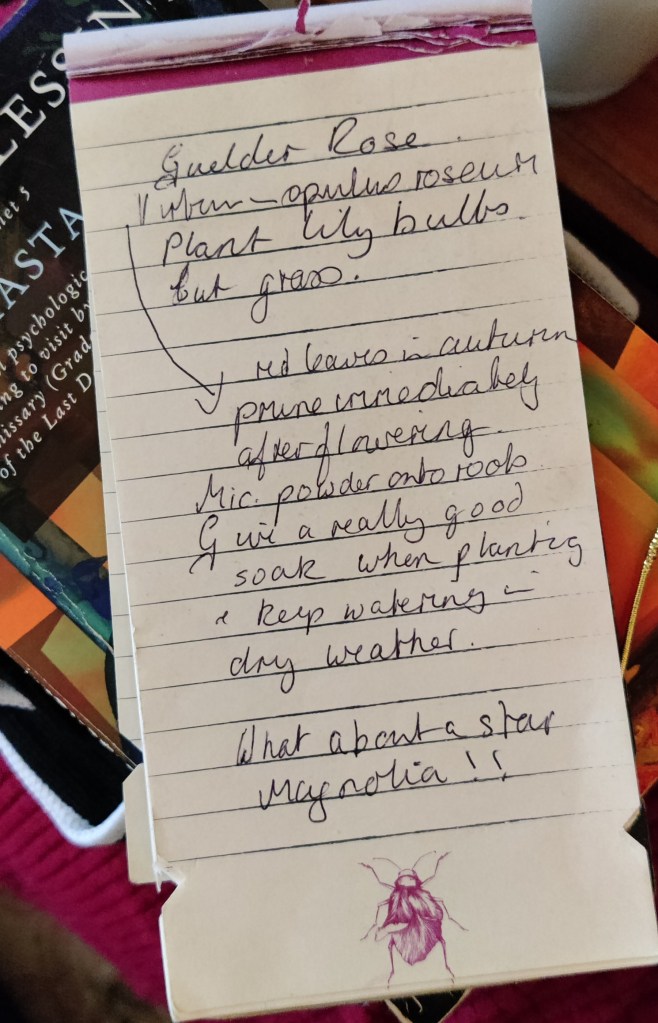 LESSIN
let 5
ASTA
psychologic
ing to visit by
missary (Grad
of the Last D
Guelder Rose.
Viburn – opulus roseum
Plant lily bulbs.
Cut grass.
red leaves in autumn
prune immediately
after flowering.
Mic. powder onto roots.
Give a really good
soak when planting
& keep watering in
dry weather.
What about a star
Magnolia !!